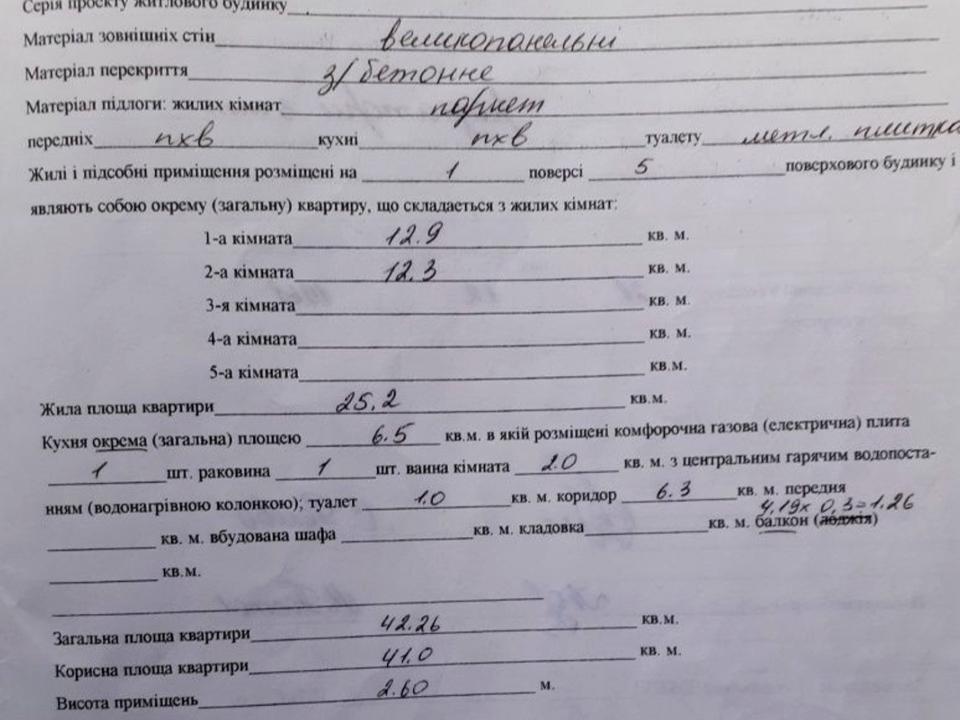 Серія проекту житлового будинку
Матеріал зовнішніх стін великопанельні
Матеріал перекриття з/бетонне
Матеріал підлоги: жилих кімнат паркет
передніх пхв кухні пхв туалету метл. плитка
Жилі і підсобні приміщення розміщені на 1 поверсі 5 поверхового будинку і
являють собою окрему (загальну) квартиру, що складається з жилих кімнат:
1-а кімната 12.9 кв. м.
2-а кімната 12.3 кв. м.
3-я кімната кв. м.
4-а кімната кв. м.
5-а кімната кв.м.
Жила площа квартири 25.2 кв.м.
Кухня окрема (загальна) площею 6.5 кв.м. в якій розміщені комфорочна газова (електрична) плита
1 шт. раковина 1 шт. ванна кімната 2.0 кв. м. з центральним гарячим водопоста-
нням (водонагрівною колонкою); туалет 1.0 кв. м. коридор 6.3 кв. м. передня
4,19х 0,3=1.26
кв. м. вбудована шафа кв. м. кладовка кв. м. балкон (лоджія)
кв.м.
Загальна площа квартири 42.26 кв.м.
Корисна площа квартири 41.0 кв. м.
Висота приміщень 2.60 м.